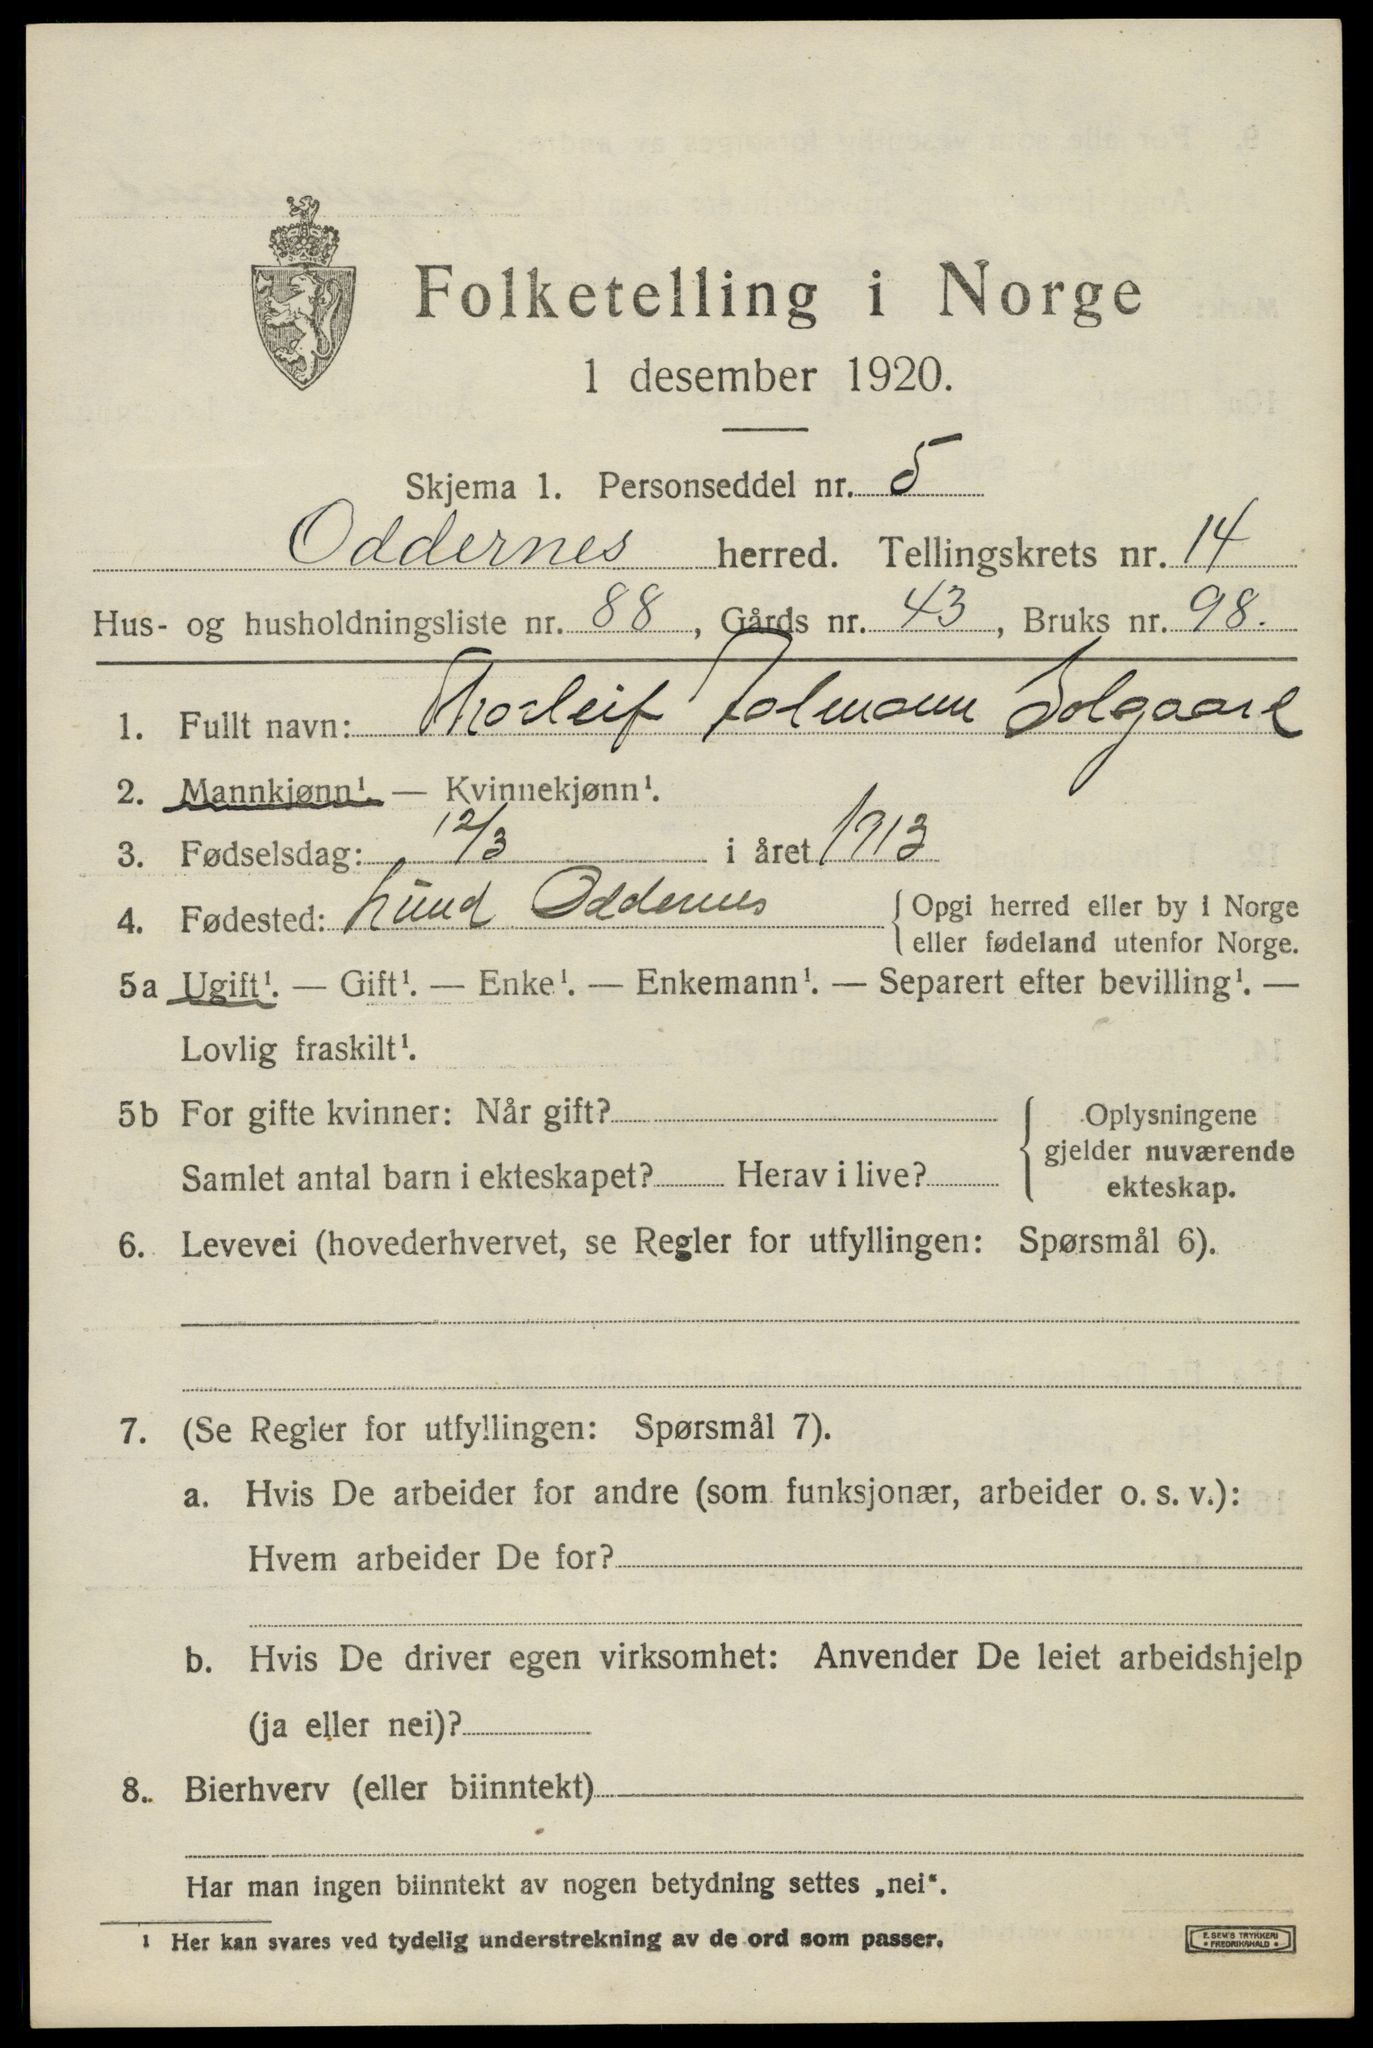 Folketelling i Norge
1 desember 1920.
Skjema 1. Personseddel nr. 5
Oddernes herred. Tellingskrets nr. 14
Hus- og husholdningsliste nr. 88, Gårds nr. 43, Bruks nr. 98.
1. Fullt navn: Thorleif Tolmann Solgaard
2. Mannkjønn¹. — Kvinnekjønn¹.
3. Fødselsdag: 12/3 i året 1913
4. Fødested: Lund Oddernes { Opgi herred eller by i Norge
eller fødeland utenfor Norge.
5a Ugift¹. — Gift¹. — Enke¹. — Enkemann¹. — Separert efter bevilling¹. —
Lovlig fraskilt¹.
5b For gifte kvinner: Når gift? { Oplysningene
gjelder nuværende
Samlet antal barn i ekteskapet? Herav i live? ekteskap.
6. Levevei (hovederhvervet, se Regler for utfyllingen: Spørsmål 6).
7. (Se Regler for utfyllingen: Spørsmål 7).
a. Hvis De arbeider for andre (som funksjonær, arbeider o. s. v.):
Hvem arbeider De for?
b. Hvis De driver egen virksomhet: Anvender De leiet arbeidshjelp
(ja eller nei)?
8. Bierhverv (eller biinntekt)
Har man ingen biinntekt av nogen betydning settes „nei“.
¹ Her kan svares ved tydelig understrekning av de ord som passer.
E. SEM'S TRYKKERI
• FREDRIKSHALD •